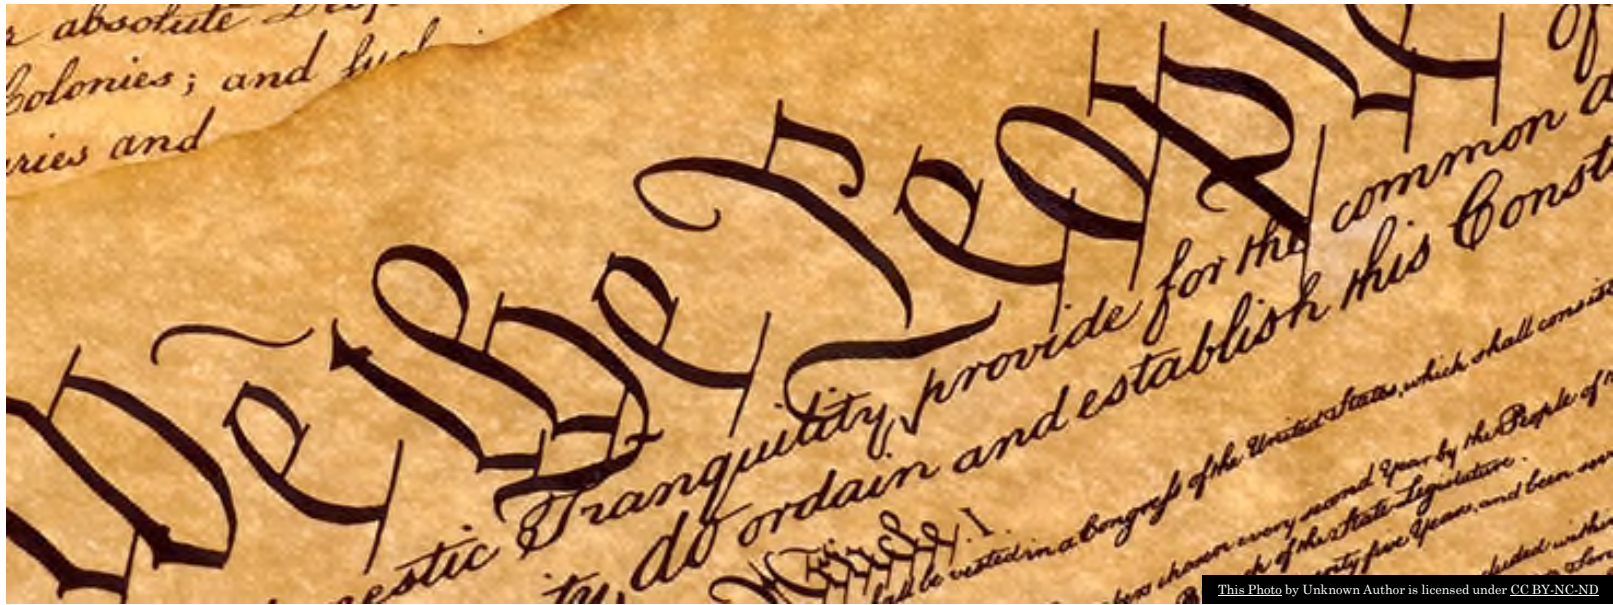 absolute
Colonies; and such
aries and
We the People of
mestic Tranquility, provide for the common d
ity, do ordain and establish this Const
Article. I.
shall be vested in a Congress of the United States, which shall consist
bers chosen every second Year by the People of
ch of the State Legislature.
enty five Years, and been seven
cluded within
This Photo by Unknown Author is licensed under CC BY-NC-ND